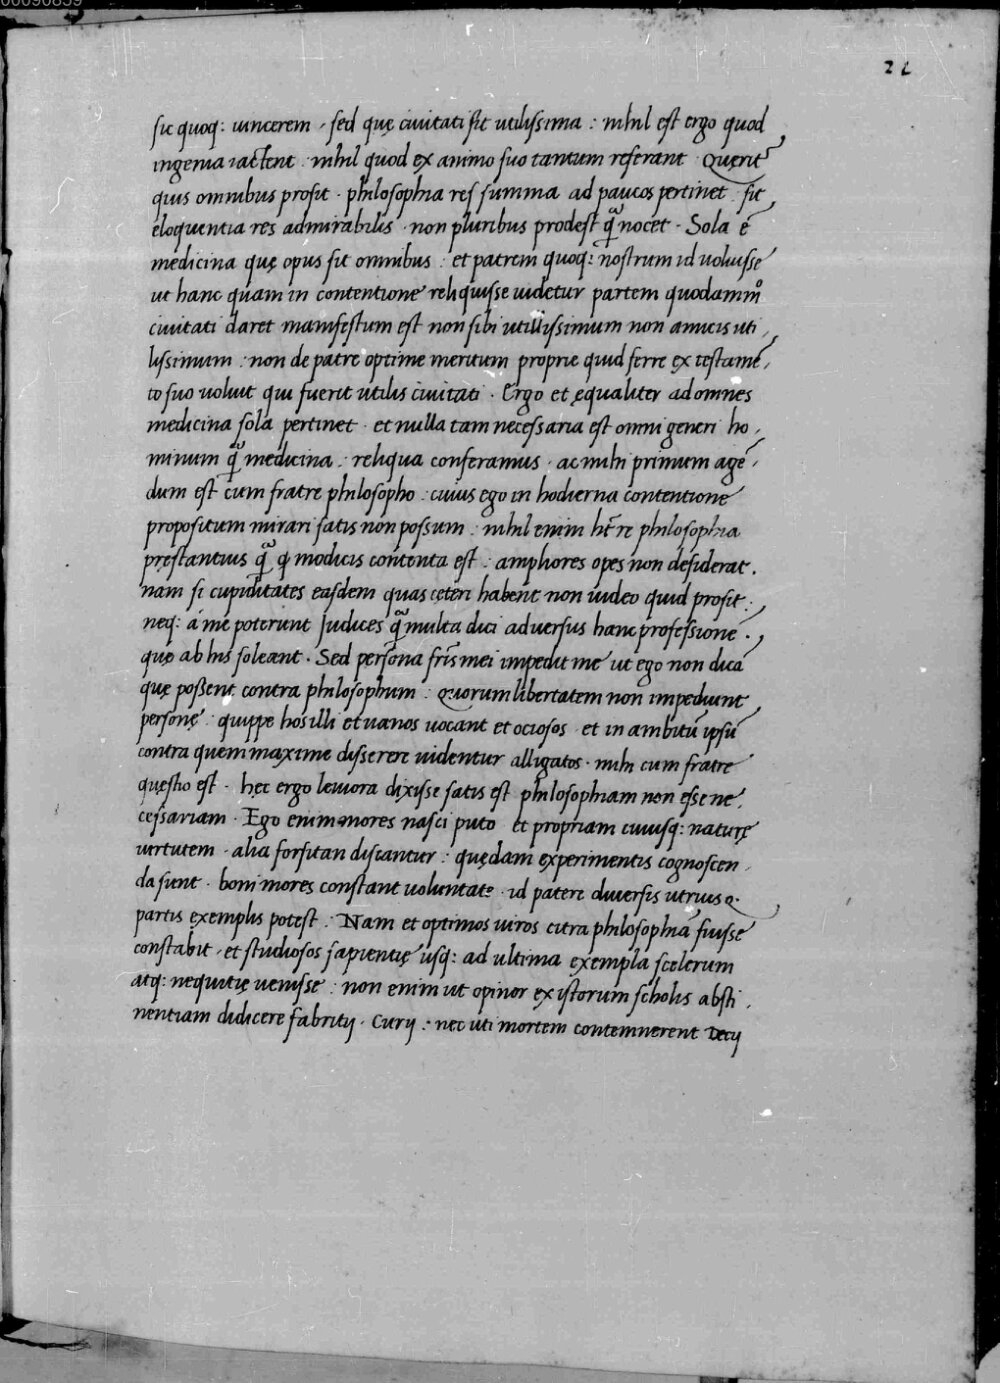 00090859
22
sic quoq: uincerem , sed quę ciuitati sit utilissima : nihil est ergo quod
ingenia iactent . nihil quod ex animo suo tantum referant . Querit̃
quis omnibus prosit . philosophia res summa ad paucos pertinet . sit
eloquentia res admirabilis . non pluribus prodest q̃ nocet . Sola ē
medicina quę opus sit omnibus : et patrem quoq: nostrum id uoluisse
ut hanc quam in contentione reliquisse uidetur partem quodammº
ciuitati daret manifestum est non sibi utillissimum non amicis uti,
lissimum : non de patre optime meritum proprie quid ferre ex testamē,
to suo uoluit qui fuerit utilis ciuitati . Ergo et ęqualiter ad omnes
medicina sola pertinet . et nulla tam necessaria est omni generi ho,
minum q̃ medicina : reliqua conferamus . ac mihi primum agē,
dum est cum fratre philosopho : cuius ego in hodierna contentione
propositum mirari satis non possum : nihil enim hr̃e philosophia
pręstantius q̃ ꝙ modicis contenta est : ampliores opes non desiderat .
nam si cupiditates easdem quas ceteri habent non uideo quid prosit :,
neq: a me poterunt Judices q̃ multa dici aduersus hanc professionē .,
quę ab his soleant . Sed persona fr̃is mei impedit me ut ego non dicā
quę possent contra philosophum : Quorum libertatem non impediunt
personę : quippe hos illi et uanos uocant et ociosos . et in ambitū ipsū,
contra quem maxime disserere uidentur alligatos . mihi cum fratre
questio est . hec ergo leuiora dixisse satis est philosophiam non esse ne,
cessariam . Ego enim mores nasci puto et propriam cuiusq: naturę
uirtutem . alia forsitan discantur : quędam experimentis cognoscen,
da sunt . boni mores constant uoluntate . id patere diuersis utriusq.
partis exemplis potest . Nam et optimos uiros citra philosophiā fuisse
constabit . et studiosos sapientię usq: ad ultima exempla scelerum
atq: nequitię uenisse : non enim ut opinor ex istorum scholis absti,
nentiam didicere fabritij . Curij : nec uti mortem contemnerent Decij